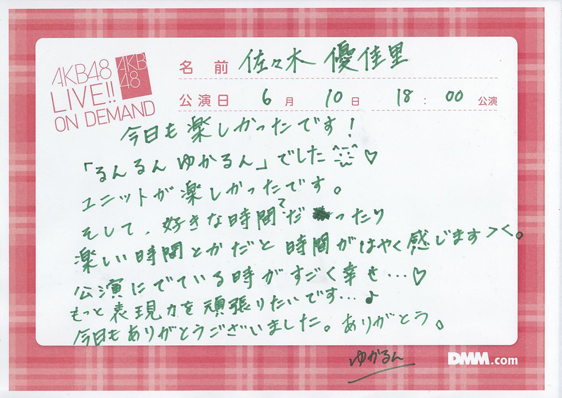 AKB48
LIVE!!
ON DEMAND
AKB
48
名前 佐々木 優佳里
公演日 6月 10日 18:00 公演
今日も楽しかったです！
「るんるん ゆかるん」でした ♡
ユニットが楽しかったです。
そして、好きな時間だったり
楽しい時間とかだと時間がはやく感じます＞＜。
公演にでている時がすごく幸せ…♡
もっと表現力を頑張りたいです…♪
今日もありがとうございました。ありがとう。
ゆかるん
DMM.com